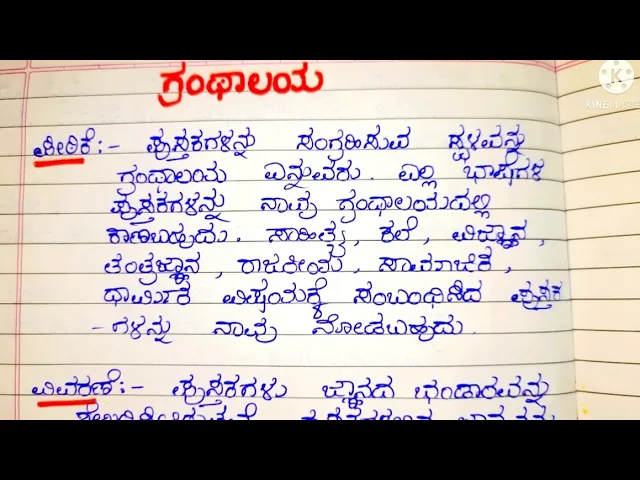 ಗ್ರಂಥಾಲಯ
ಪೀಠಿಕೆ:- ಪುಸ್ತಕಗಳನ್ನು ಸಂಗ್ರಹಿಸುವ ಸ್ಥಳವನ್ನು
ಗ್ರಂಥಾಲಯ ಎನ್ನುವರು. ಎಲ್ಲ ಭಾಷೆಗಳ
ಪುಸ್ತಕಗಳನ್ನು ನಾವು ಗ್ರಂಥಾಲಯದಲ್ಲಿ
ಕಾಣಬಹುದು. ಸಾಹಿತ್ಯ, ಕಲೆ, ವಿಜ್ಞಾನ,
ತಂತ್ರಜ್ಞಾನ, ರಾಜಕೀಯ, ಸಾಮಾಜಿಕ,
ಧಾರ್ಮಿಕ ವಿಷಯಕ್ಕೆ ಸಂಬಂಧಿಸಿದ ಪುಸ್ತಕ
-ಗಳನ್ನು ನಾವು ನೋಡಬಹುದು.
ವಿವರಣೆ:- ಪುಸ್ತಕಗಳು ಜ್ಞಾನದ ಭಂಡಾರವನ್ನು
KINEMASTER